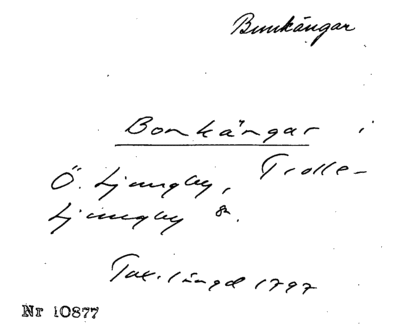 Bunkångar
Bonkångar i
Ö. Ljungby, Trolle-
Ljungby sn.
Tax. längd 1797
Nr 10877